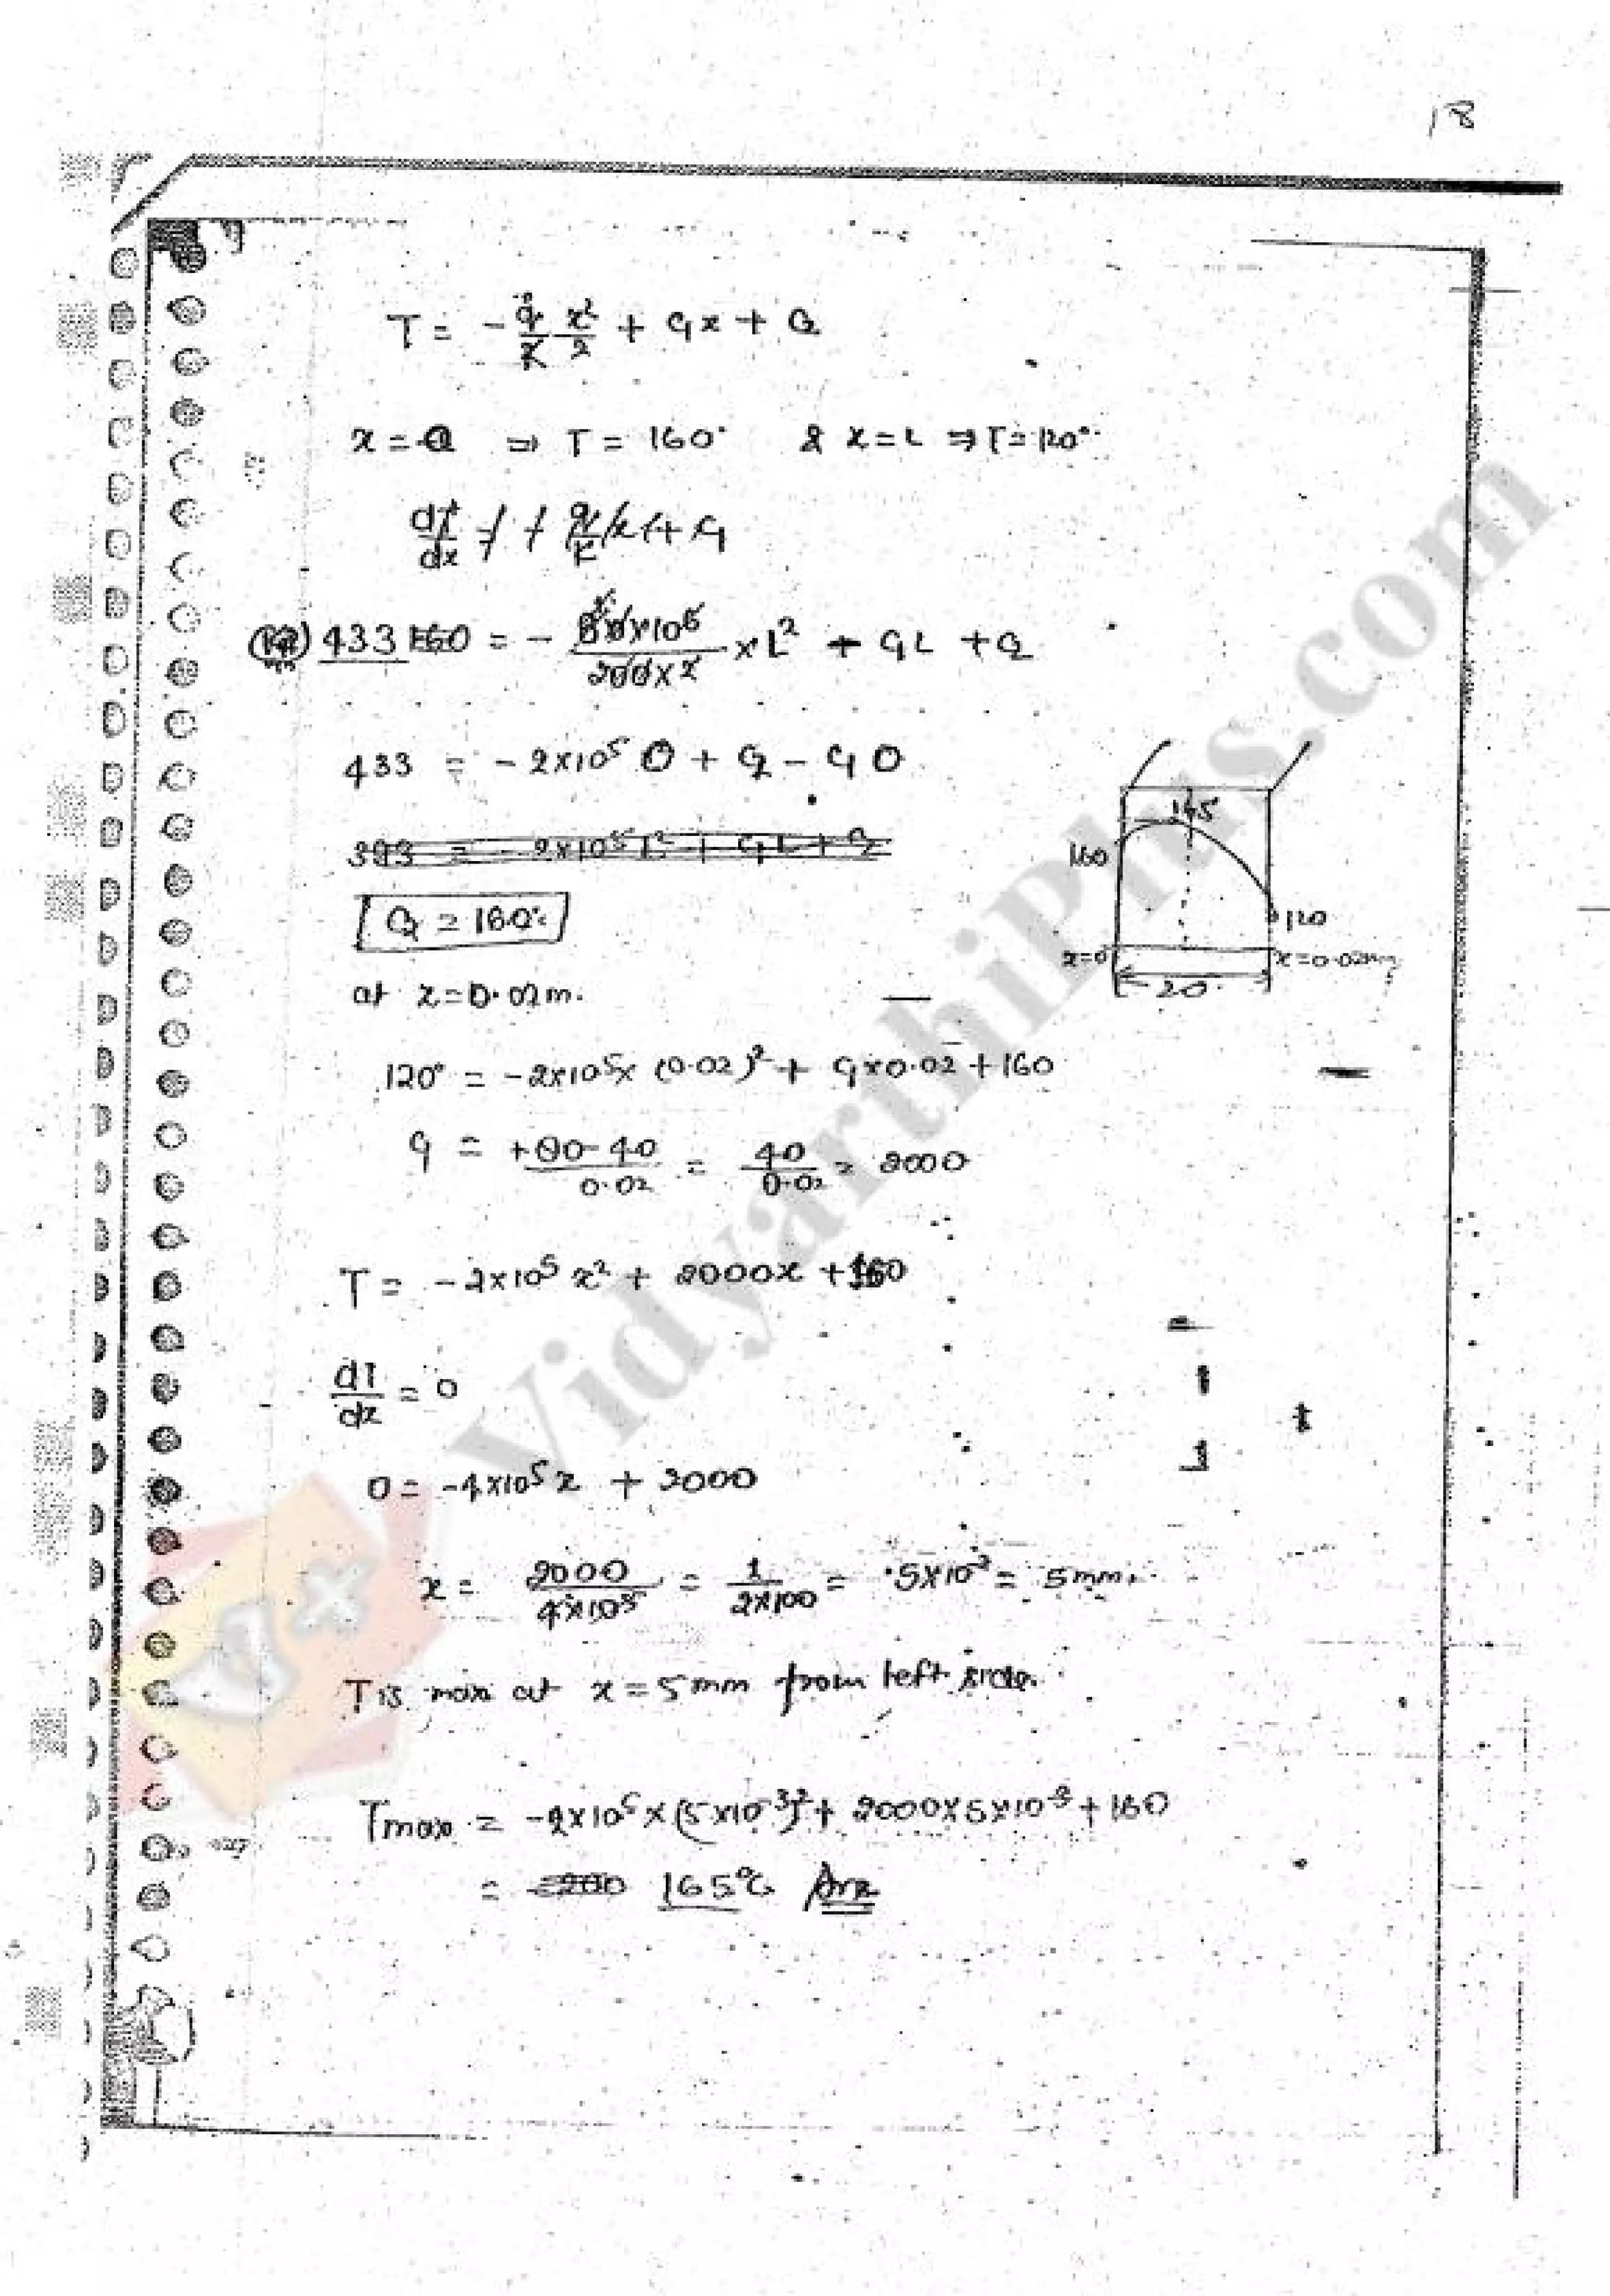 18
T = - q̇/K x²/2 + C₁x + C₂
x = 0 ⇒ T = 160° & x = L ⇒ T = 120°
dT/dx = + q̇/K x + C₁
433 160 = - 80×10⁶/200×2 × L² + C₁L + C₂
433 = -2×10⁵ 0 + C₂ - C₁ 0
393 = -2×10⁵ L² + C₁L + C₂
C₂ = 160°
165
160
120
x=0
x=0.02m
20
at x = 0.02m.
120° = -2×10⁵× (0.02)² + C₁×0.02 + 160
C₁ = +80-40/0.02 = 40/0.02 = 2000
T = -2×10⁵ x² + 2000x + 160
dT/dx = 0
0 = -4×10⁵ x + 2000
x = 2000/4×10⁵ = 1/2×100 = .5×10⁻² = 5mm.
T is max at x = 5mm from left side.
Tmax = -2×10⁵ × (5×10⁻³)² + 2000×5×10⁻³ + 160
= 165°C Ans
VidyarthiPlus.com
V+